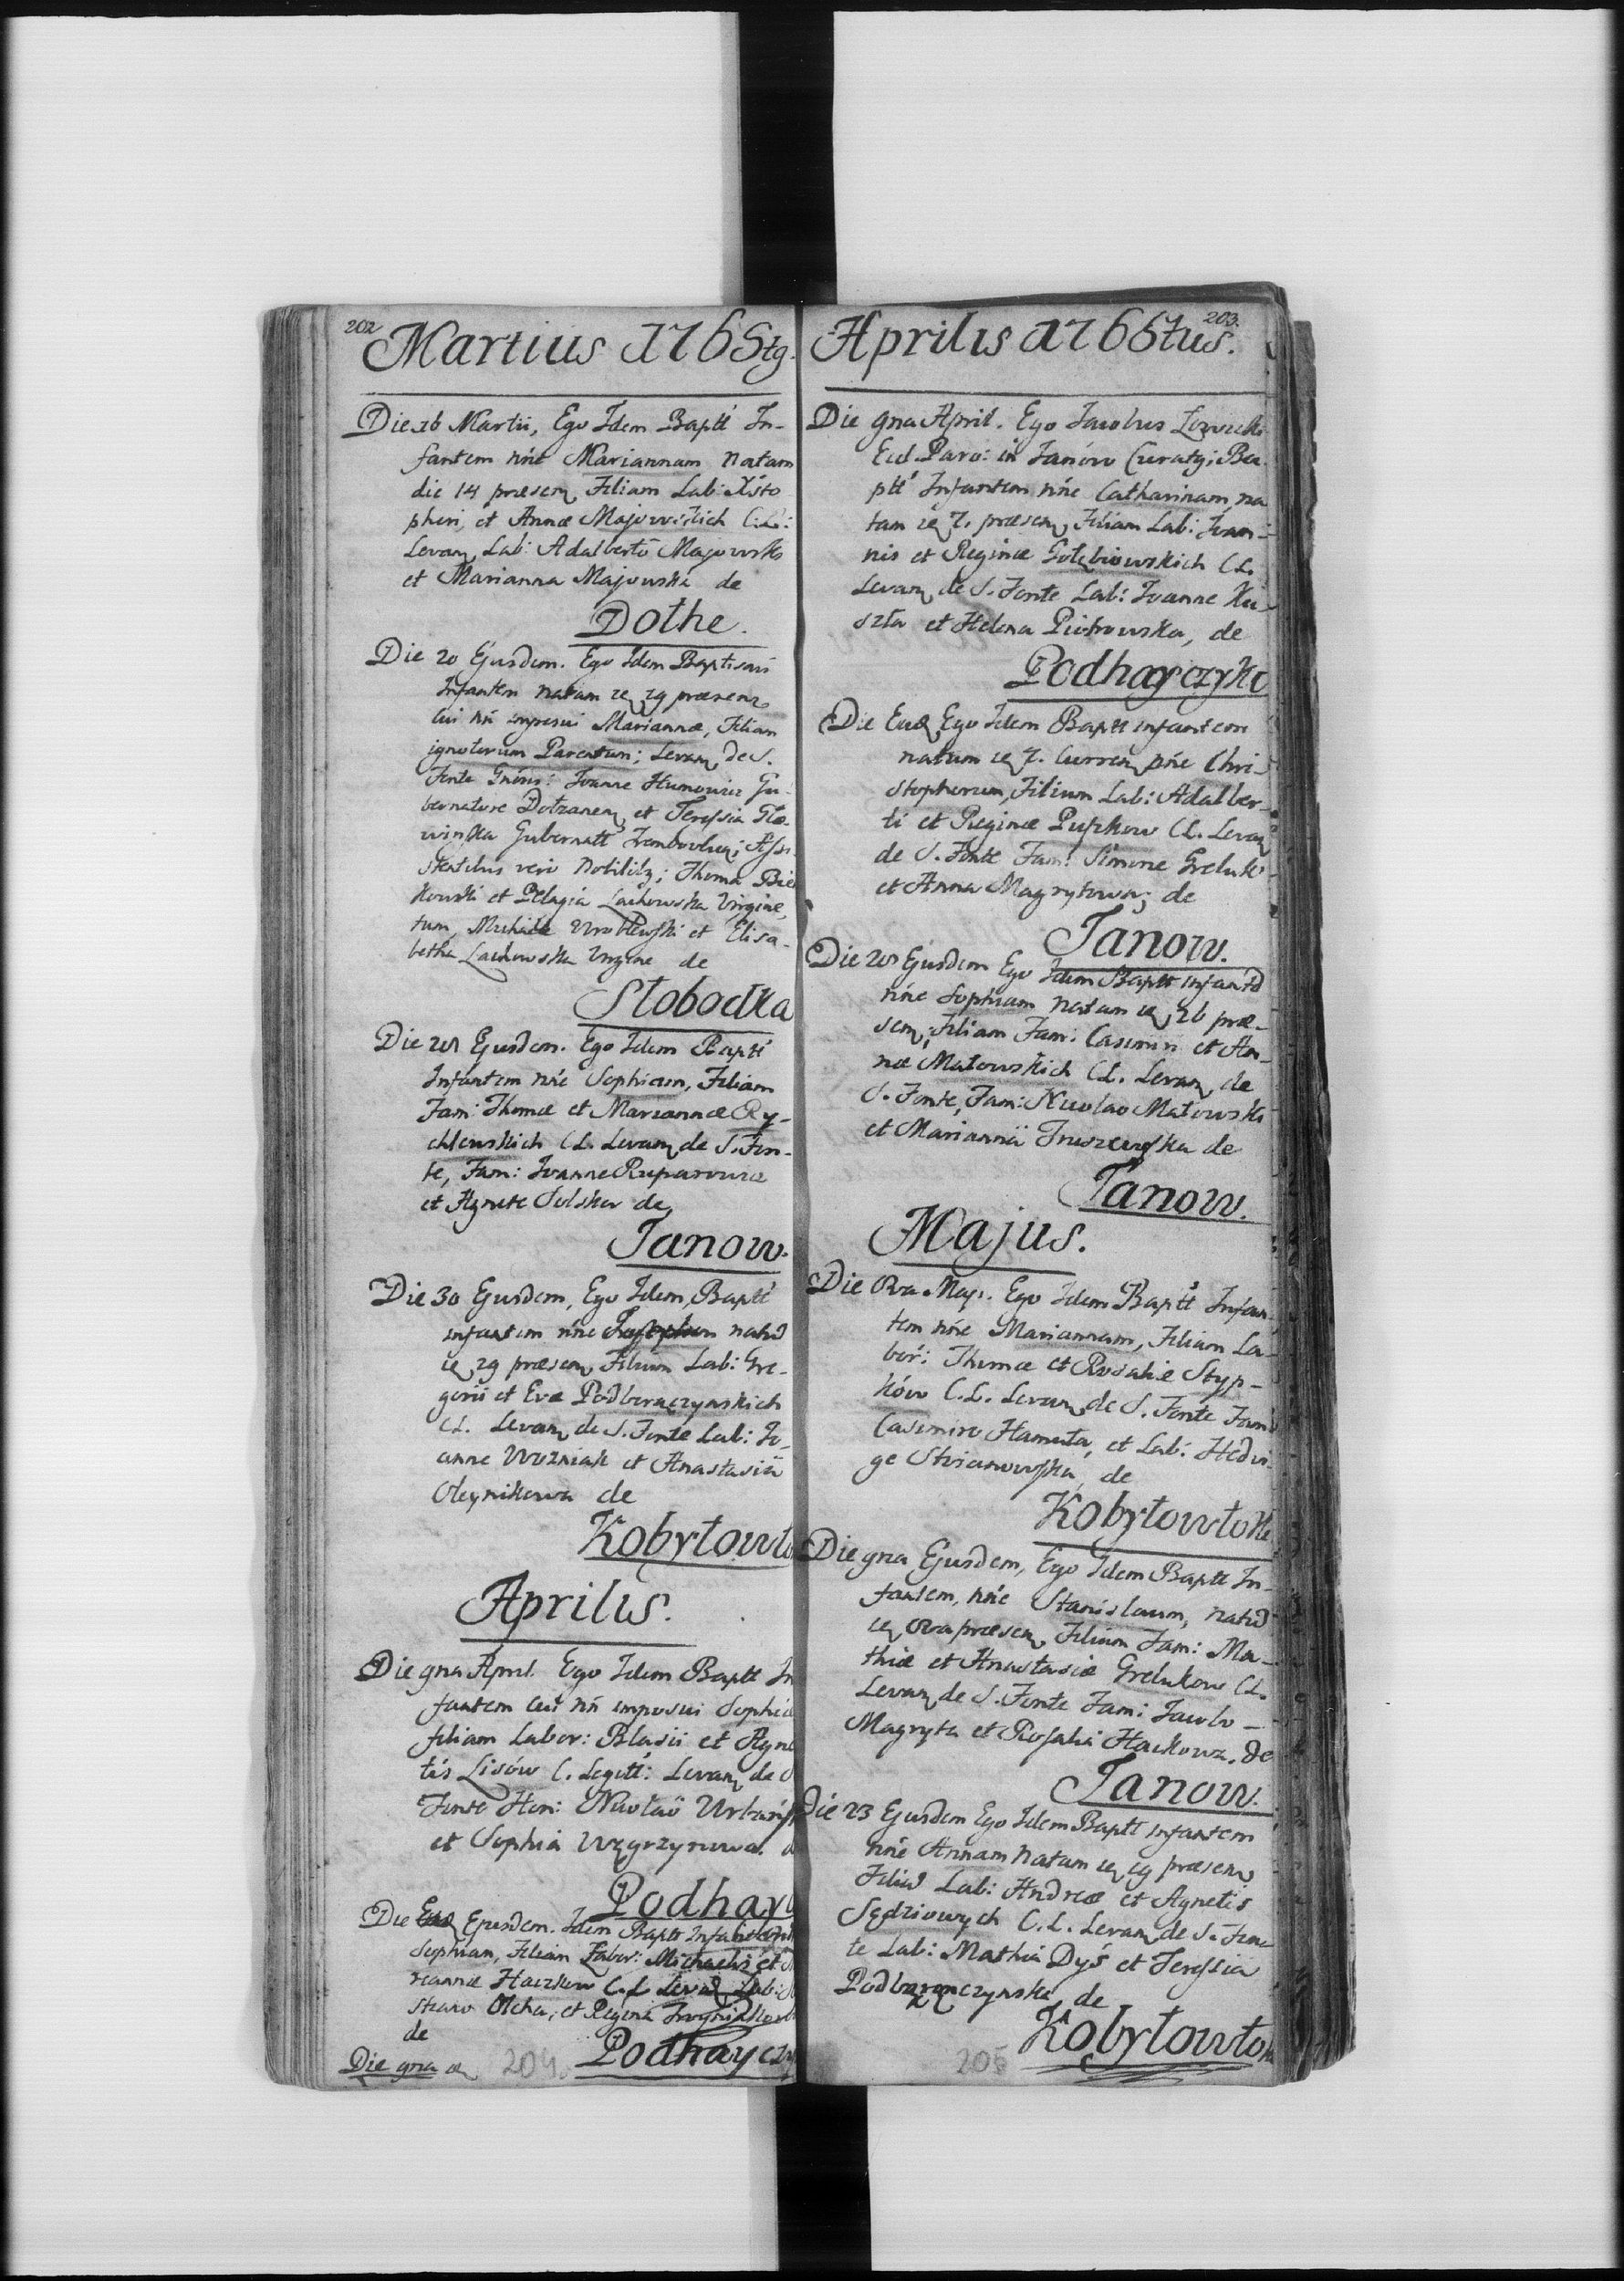 202
Martius 1765tg.
Die 16 Martii, Ego Idem Baptt In-
fantem nñe Mariannam natam
die 14 præsen, Filiam Lab: Xsto
pheri, et Annæ Majowskich C.L:
Levan, Lab: Adalberto Majowski
et Marianna Majowska de
Dołhe.
Die 20 Ejusdem. Ego Idem Baptisavi
Infantem natam 19 præsens
cui nñ imposui Mariannæ, Filiam
ignotorum Parentum; Levan, de S.
Fonte Gnėris: Joanne Humowicz Gu-
bernatore Dołzanen, et Teressia
Gubernatt Assi-
stentibus vero Nobilib; Thoma
et Pelagia Lachowska Virgine,
tum, Michaele Wroblewski et Elisa-
betha Lachowska Virgine de
Słobodka
Die 21 Ejusdem. Ego Idem Baptt
Infantem nñe Sophiam, Filiam
Fam: Thomæ et Mariannæ Ry-
chlewskich CL. Levan de S. Fon-
te, Fam: Joanne Ruparowicz
et Agnete Solska de
Janow.
Die 30 Ejusdem, Ego Idem, Baptt
infantem nñe natũ
29 præsen, Filium Lab: Gre-
gorii et Evæ Podboraczynskich
CL. Levan de S. Fonte Lab: Jo-
anne Wozniak et Anastasiä
Oleynikowa de
Kobyłowło
Aprilis.
Die 9na April. Ego Idem Baptt In
fantem cui nñ imposui Sophiæ
filiam Labor: Blasii et Agne
tis Lisów C. Legitt: Levan de S
Fonte Hon: Nicolaö
et Sophia Węgrzynowa. d
Podhay
Die Ejusdem. Idem Baptt Infantem
Sophiam, Filiam Labor: Michaelis et
riannæ Haczkow C.L Levan Lab:
Olcha, et Regina
de
Podhaycz
Die 9na
204.
203.
Aprilis 1765tus.
Die 9na April. Ego Jacobus
Eccl. Paro: in Janów Curatg; Ba
ptt Infantem nñe Catharinam, na
tam 7. præsen, Filiam Lab: Joan-
nis et Reginæ Gołębiowskich CL.
Levan de S. Fonte Lab: Joanne Ku-
szta et Helena Piotrowska, de
Podhayczyki
Die Ead Ego Idem Baptt infantem
natum 7. Curren nñe Chri-
stopherum, Filium Lab: Adalber-
ti et Reginæ Puszkow CL. Levan
de S. Fonte Fam: Simone Greluk
et Anna Magrytowa; de
Janow.
Die 20 Ejusdem Ego Idem Baptt infantẽ
nñe Sophiam natam 16 præ-
sen, Filiam Fam: Casimiri et An-
næ Małowskich CL. Levan de
S. Fonte, Fam: Nicolao Małowski
et Mariannä Truszewska de
Janow.
Majus.
Die 8va Maji. Ego Idem Baptt Infan-
tem nñe Mariannam, Filiam La-
bor: Thomæ et Rosaliæ Styp-
ków C.L. Levan de S. Fonte Fam:
Casimiro Hamuła, et Lab: Hedvi-
ge de
Kobyłowłoki
Die 9na Ejusdem, Ego Idem Baptt In-
fantem, nñe Stanislaum, natũ
8va præsen, Filium Fam: Ma-
thiæ et Anastasiæ Grelukow CL.
Levan de S. Fonte Fam: Jacobo
Magryta et Rosalia Hackowa, de
Janow.
Die 23 Ejusdem Ego Idem Baptt infantem
nñe Annam natam 19 præsen
Filiã Lab: Andreæ et Agnetis
Sędziowych C.L. Levan de S. Fon-
te Lab: Mathia Dyś et Teressia
Podboraczynska, de
Kobyłowłok
205